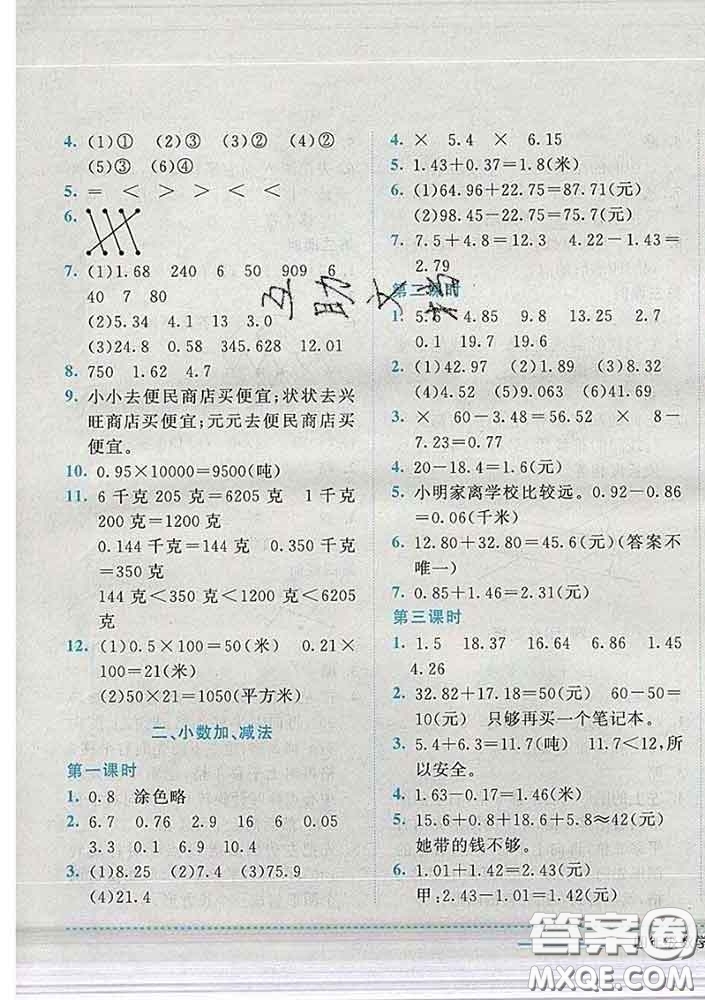 4. (1)① (2)③ (3)② (4)②
(5)③ (6)④
5. = < > > < <
6.
7. (1)1.68 240 6 50 909 6
40 7 80
(2)5.34 4.1 13 3.0
(3)24.8 0.58 345.628 12.01
8. 750 1.62 4.7
9. 小小去便民商店买便宜;状状去兴
旺商店买便宜;元元去便民商店买
便宜。
10. 0.95×10000=9500(吨)
11. 6 千克 205 克=6205 克 1 千克
200 克=1200 克
0.144 千克=144 克 0.350 千克
=350 克
144 克<350 克<1200 克<6205
克
12. (1)0.5×100=50(米) 0.21×
100=21(米)
(2)50×21=1050(平方米)
二、小数加、减法
第一课时
1. 0.8 涂色略
2. 6.7 0.76 2.9 16 6 0.05
3.3 0.1 6.9 10.4
3. (1)8.25 (2)7.4 (3)75.9
(4)21.4
4. × 5.4 × 6.15
5. 1.43+0.37=1.8(米)
6. (1)64.96+22.75=87.71(元)
(2)98.45-22.75=75.7(元)
7. 7.5+4.8=12.3 4.22-1.43=
2.79
第二课时
1. 5.6 4.85 9.8 13.25 2.7
0.1 19.7 0.9
2. (1)42.97 (2)1.24 (3)8.32
(4)4.52 (5)9.09 (6)6.41
3. × 60-3.48=56.52 × 8-
7.23=0.77
4. 20-18.4=1.6(元)
5. 小明家离学校比较远。0.92-0.86
=0.06(千米)
6. 12.80+32.80=45.6(元)(答案不
唯一)
7. 0.85+1.46=2.31(元)
第三课时
1. 1.5 18.37 16.64 6.86 1.45
4.26
2. 32.82+17.18=50(元) 60-50=
10(元) 只够再买一个笔记本。
3. 5.4+6.3=11.7(吨) 11.7<12,所
以安全。
4. 1.63-0.17=1.46(元)
5. 15.6+0.8+18.6+5.8≈42(元)
她带的钱不够。
6. 1.01+1.42=2.43(元)
甲:2.43-1.01=1.42(元)
互助文档
答案卷
MXQE.COM